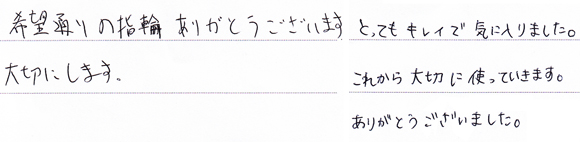 希望通りの指輪ありがとうございます
大切にします。
とってもキレイで気に入りました。
これから大切に使っていきます。
ありがとうございました。